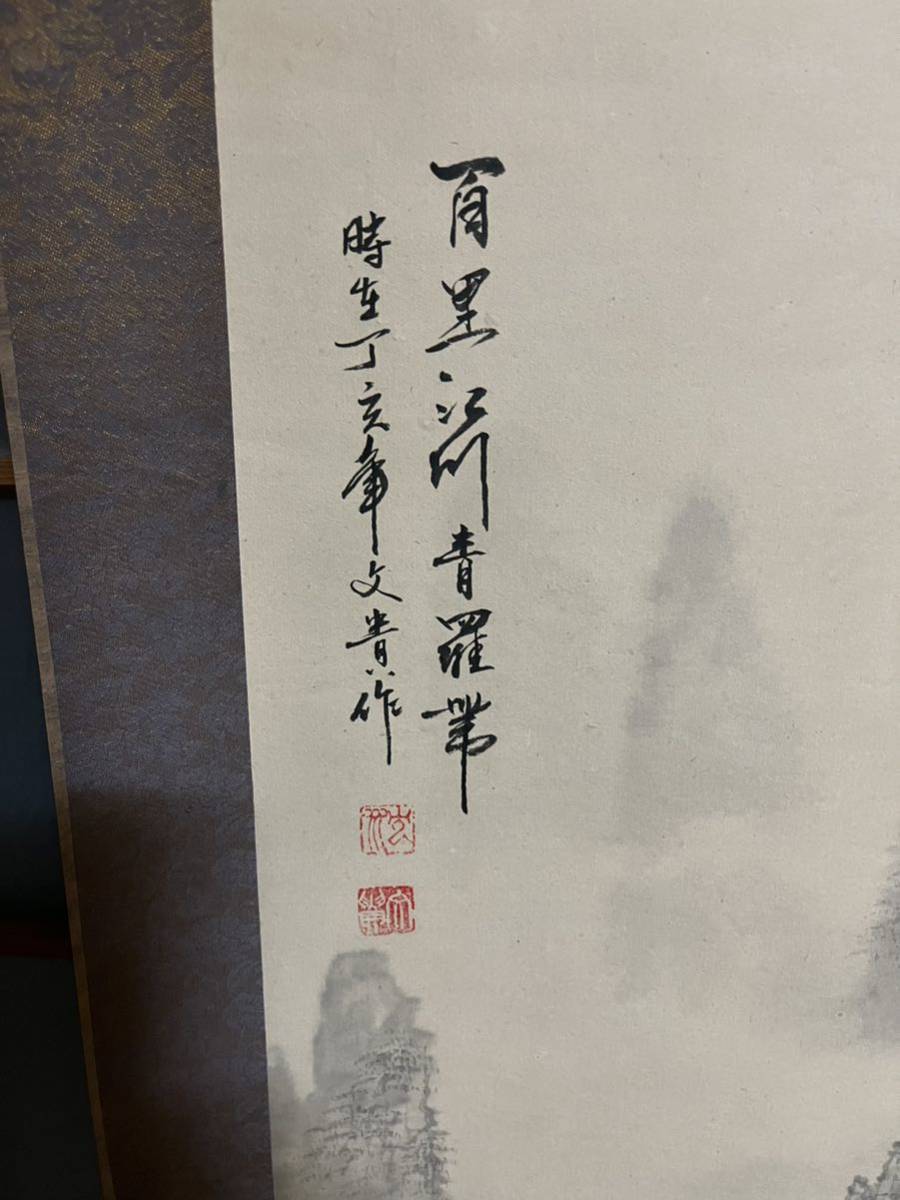 百里江川青羅帶
時在丁亥年文貴作
文貴